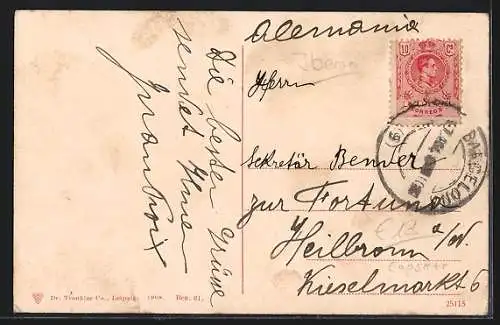 Die besten Grüsse
sendet Ihnen
Alemania
Herrn
Sekretär Benver
zur Fortuna
Heilbronn a/N.
Kieselmarkt 6
10 Cs
CORREOS
BARCELONA
Dr. Trenkler Co., Leipzig. 1908. Bcn. 61.
25115